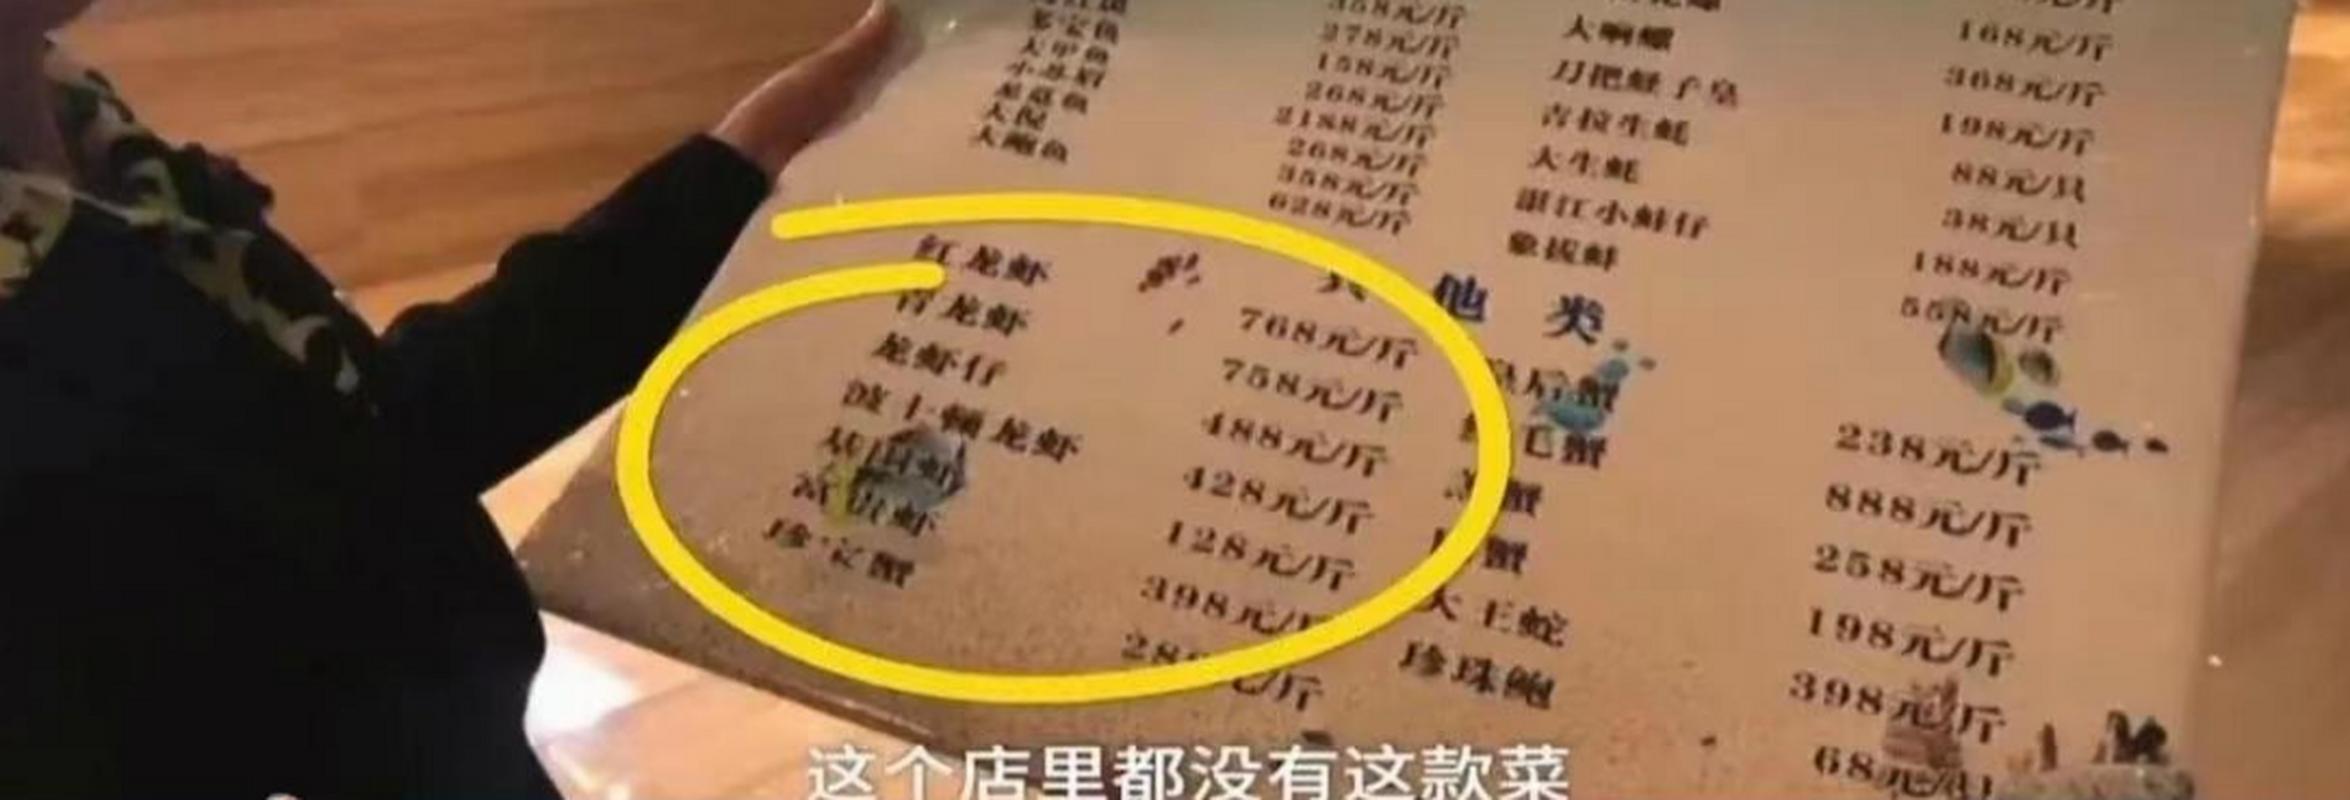 358元/斤
多宝鱼 278元/斤
大甲鱼 158元/斤
268元/斤
2188元/斤
268元/斤
大鲍鱼 358元/斤
628元/斤
大响螺 168元/斤
刀把蛏子皇 368元/斤
吉拉生蚝 198元/斤
大生蚝 88元/只
湛江小蚌仔 38元/只
象拔蚌 188元/斤
558元/斤
红龙虾 768元/斤
青龙虾 758元/斤
龙虾仔 488元/斤
波士顿龙虾 428元/斤
基围虾 128元/斤
富贵虾 398元/斤
珍宝蟹 元/斤
其他类
皇后蟹 238元/斤
毛蟹 888元/斤
蟹 258元/斤
蟹 198元/斤
大王蛇 398元/斤
珍珠鲍 68元
这个店里都没有这款菜